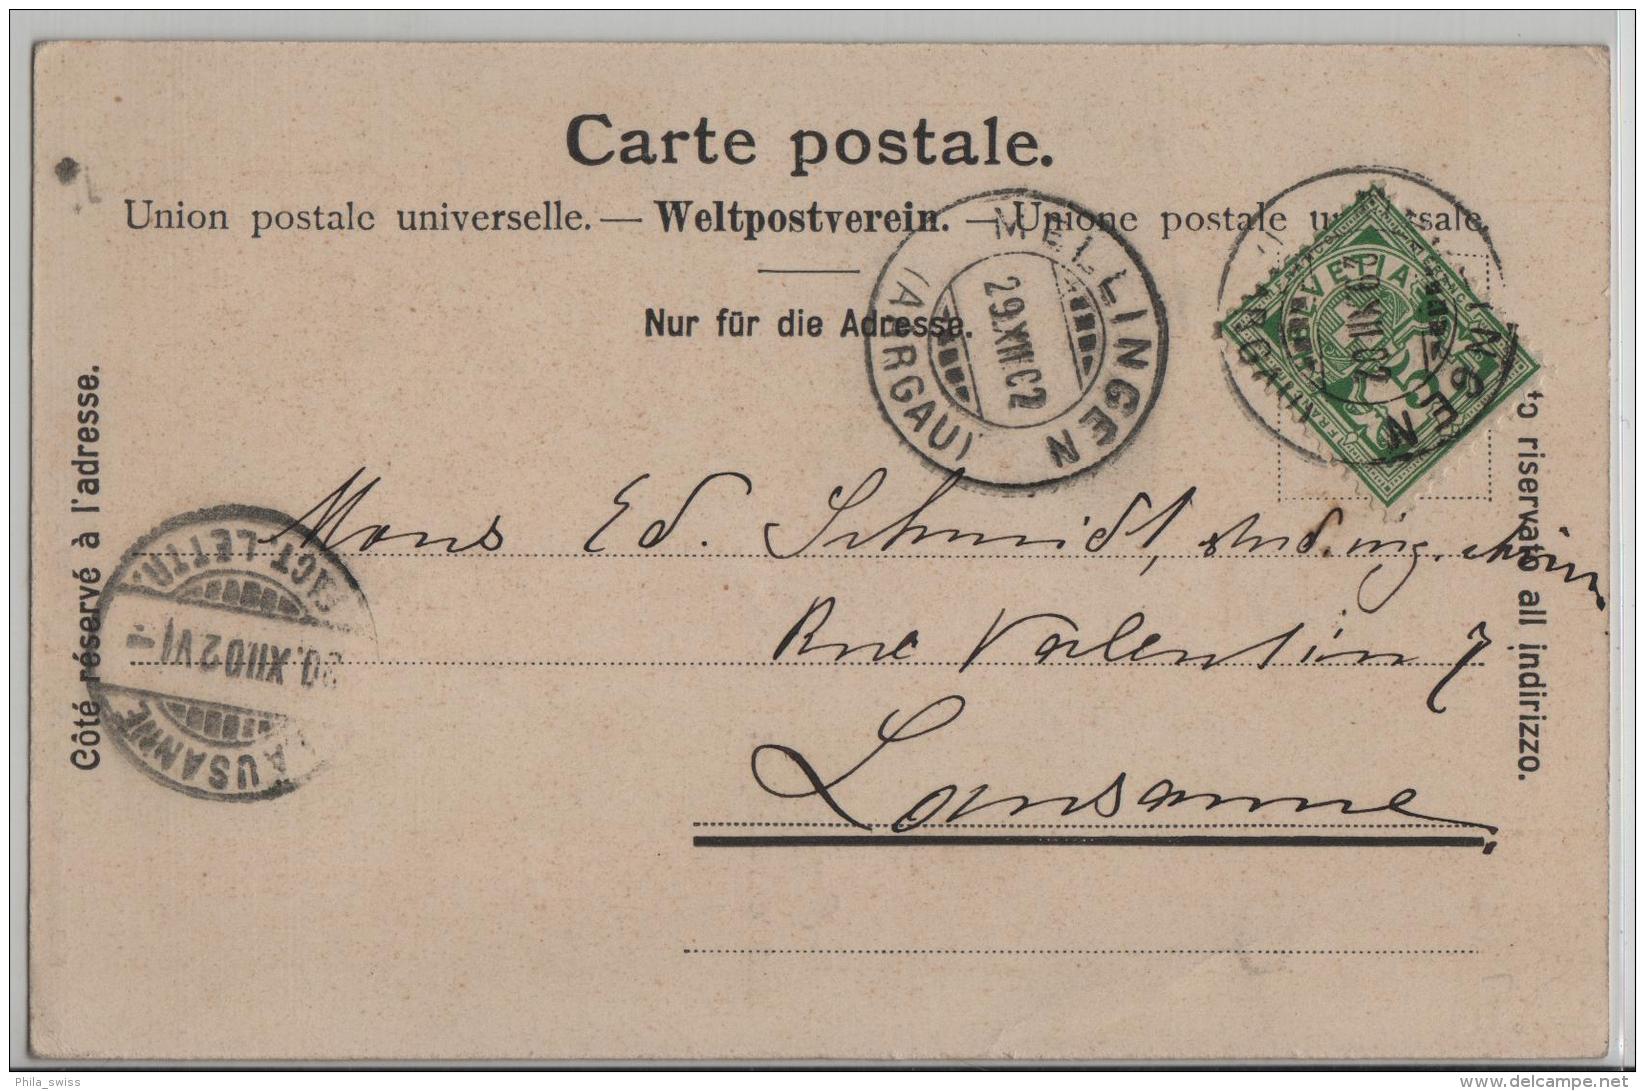 Carte postale.
Union postale universelle. — Weltpostverein. — Unione postale universale.
Nur für die Adresse.
Côté réservé à l'adresse.
to riservato all indirizzo.
MELLINGEN
29.XII.02
(AARGAU)
HELVETIA
5
XII 02
LAUSANNE
30.XII.02 VI-
LETTR.
Mons Ed. Schmidt, stud. ing. chim
Rue Valentin 7
Lausanne.
Phila_swiss
delcampe.net